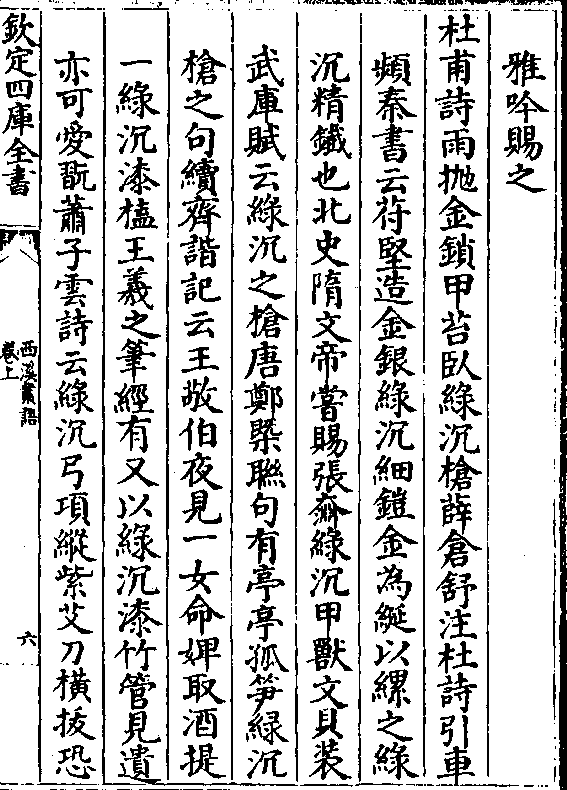 雅吟賜之
杜甫詩雨抛金鎖甲苔臥綠沉槍薛倉舒注杜詩引車
頻秦書云苻堅造金銀綠沉細鎧金為綖以縲之綠
沉精鐵也北史隋文帝嘗賜張奫綠沉甲獸文貝裝
武庫賦云綠沉之槍唐鄭槩聯句有亭亭孤笋綠沉
槍之句續齊諧記云王敬伯夜見一女命婢取酒提
一綠沉漆榼王羲之筆經有又以綠沉漆竹管見遺
亦可愛翫蕭子雲詩云綠沉弓項縱紫艾刀橫拔恐
欽定四庫全書
西溪叢語
卷上
六